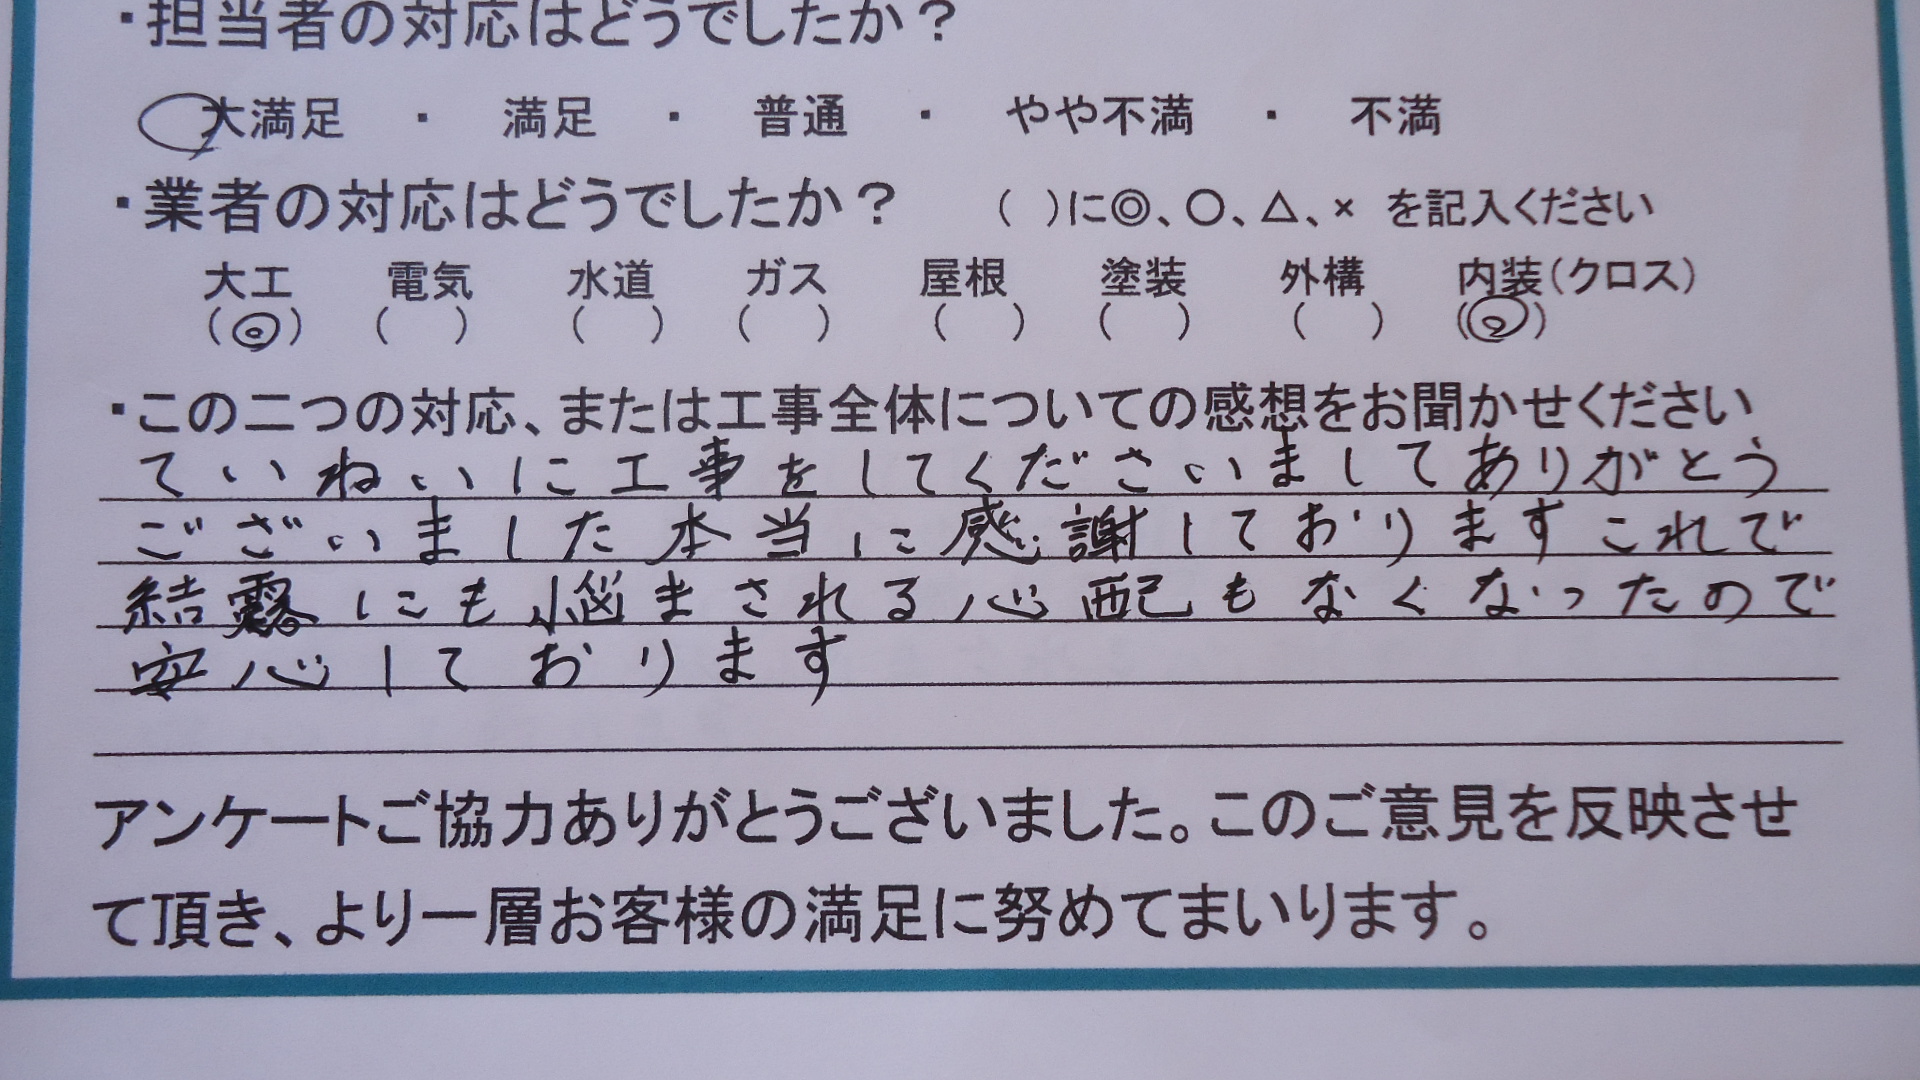 ・担当者の対応はどうでしたか？
大満足 ・ 満足 ・ 普通 ・ やや不満 ・ 不満
・業者の対応はどうでしたか？ （ ）に◎、○、△、× を記入ください
大工 電気 水道 ガス 屋根 塗装 外構 内装（クロス）
（◎） （ ） （ ） （ ） （ ） （ ） （ ） （◎）
・この二つの対応、または工事全体についての感想をお聞かせください
ていねいに工事をしてくださいましてありがとう
ございました本当に感謝しておりますこれで
結露にも悩まされる心配もなくなったので
安心しております
アンケートご協力ありがとうございました。このご意見を反映させ
て頂き、より一層お客様の満足に努めてまいります。